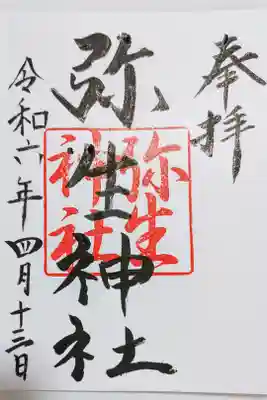 奉拝
弥生神社
弥生神社
令和六年四月十三日